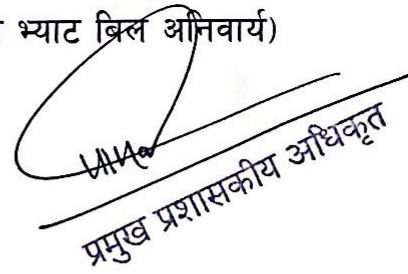 भ्याट बिल अनिवार्य)
प्रमुख प्रशासकीय अधिकृत